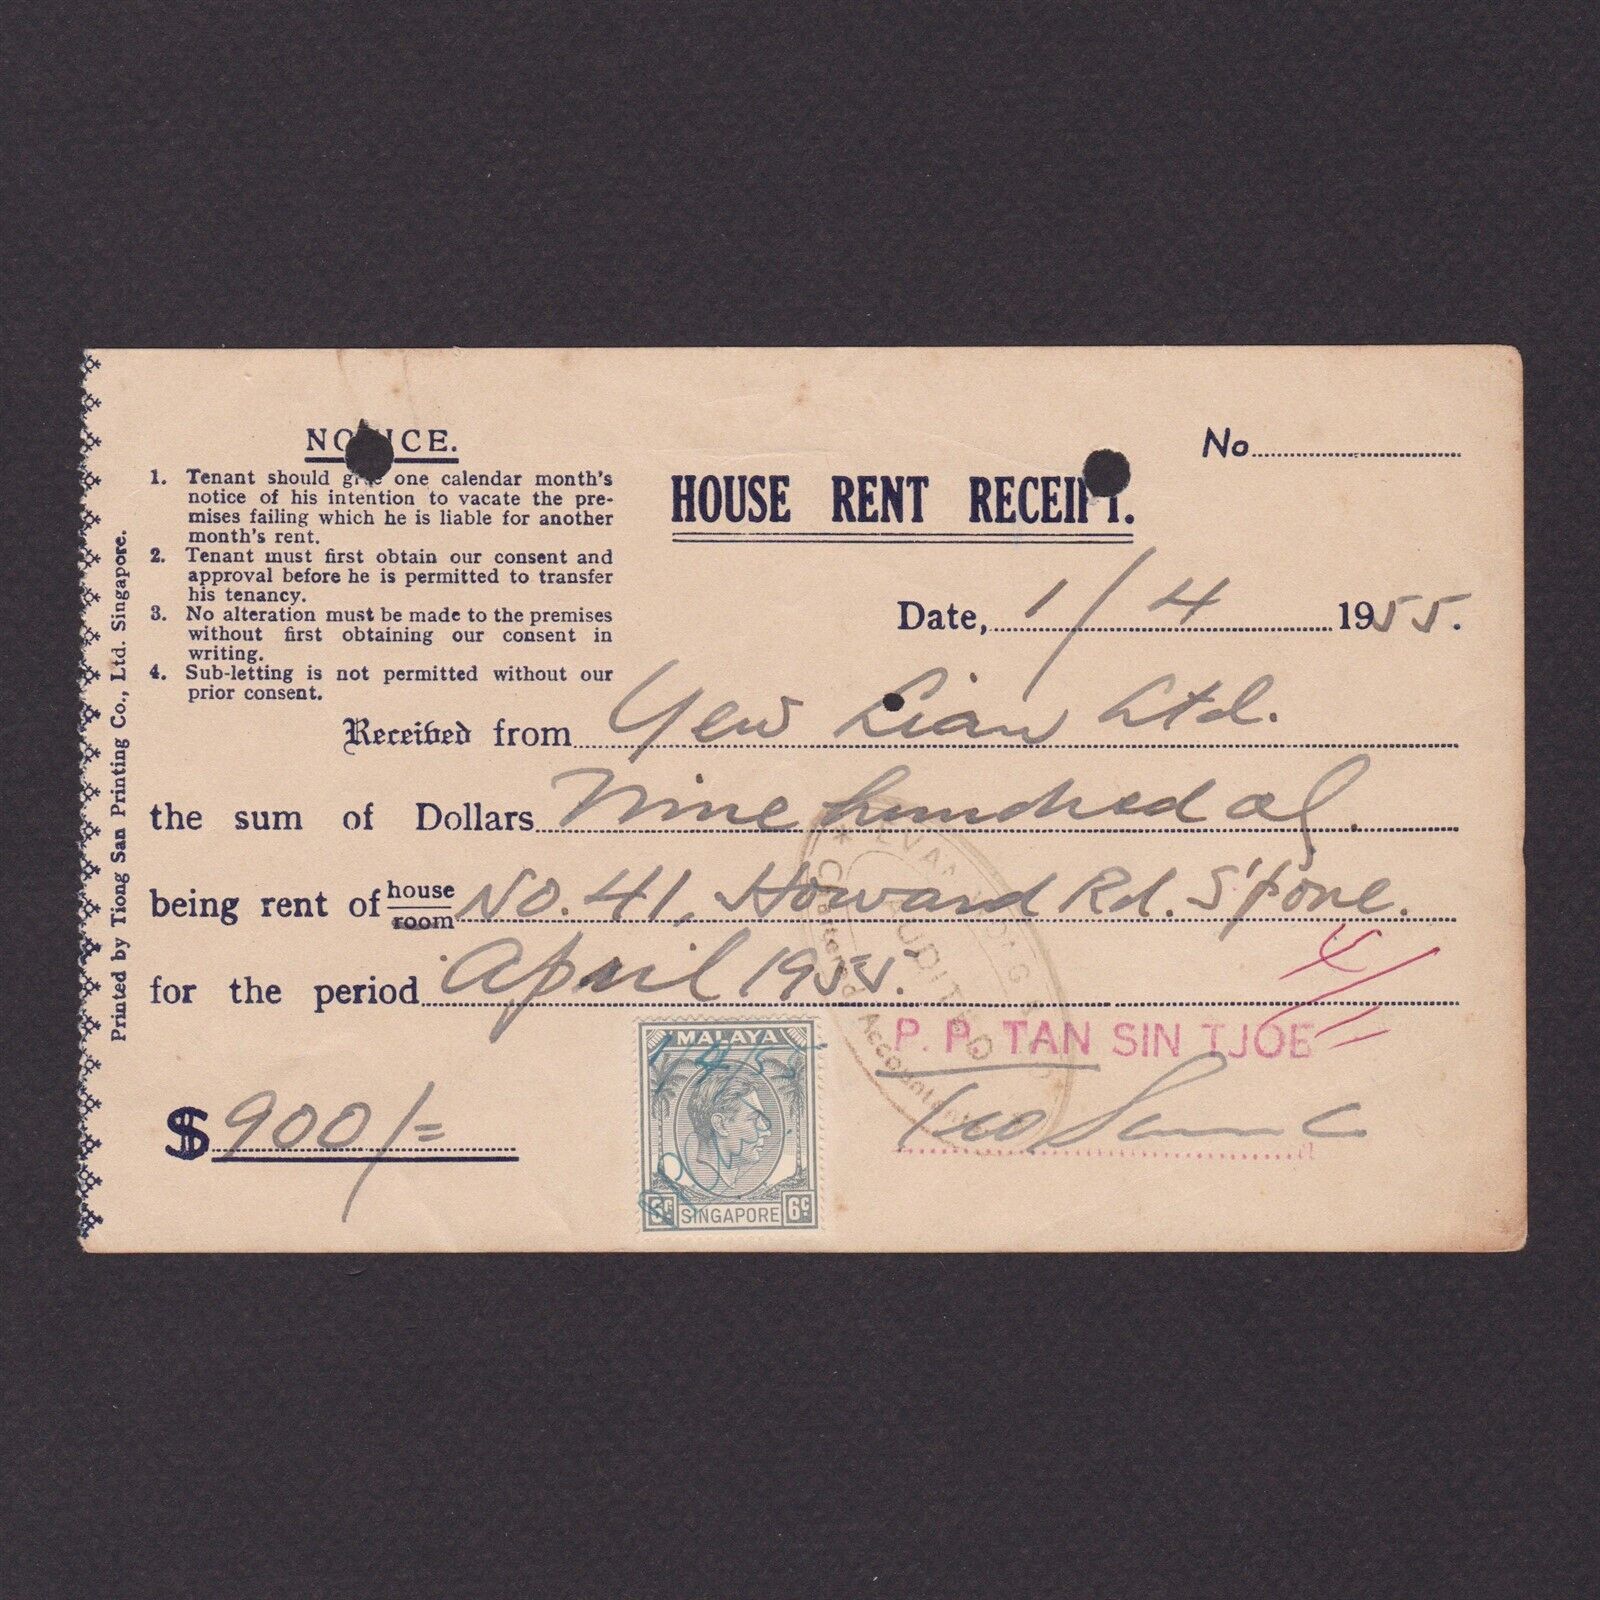 NOTICE.
1. Tenant should give one calendar month's
notice of his intention to vacate the pre-
mises failing which he is liable for another
month's rent.
2. Tenant must first obtain our consent and
approval before he is permitted to transfer
his tenancy.
3. No alteration must be made to the premises
without first obtaining our consent in
writing.
4. Sub-letting is not permitted without our
prior consent.
No
HOUSE RENT RECEIPT.
Date, 1/4 1955.
Received from Yew Lian Ltd.
the sum of Dollars Nine hundred
being rent of house room No. 41, Howard Rd. S'pore.
for the period April 1955.
P. P. TAN SIN TJOE
$ 900/=
MALAYA
6c SINGAPORE 6c
AUDITED
Chartered Accountants
Printed by Tiong San Printing Co., Ltd. Singapore.